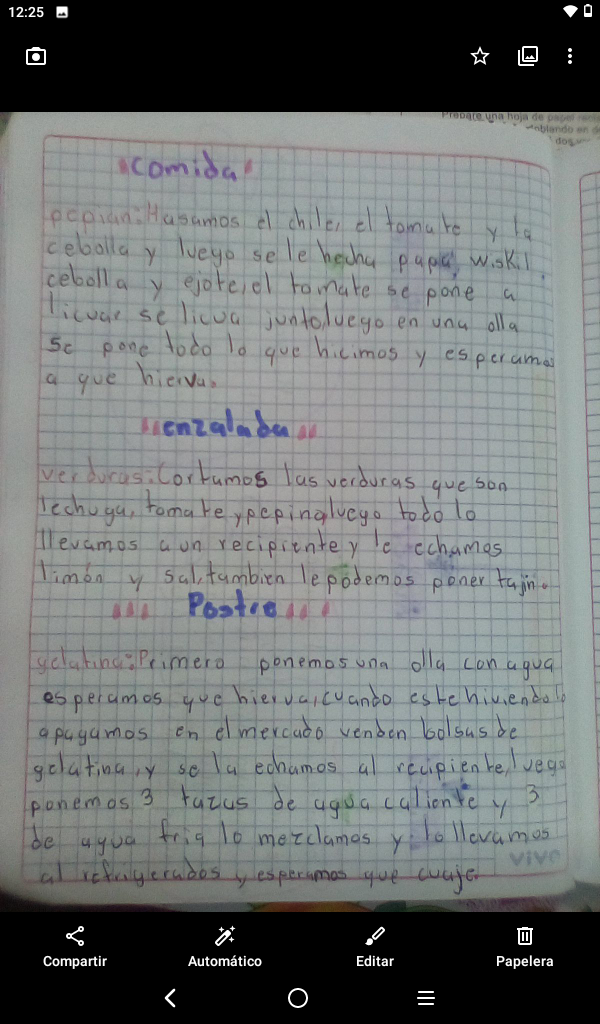 12:25
Prepare una hoja de papel
doblando en d
dos
"comida"
pepian: Hasamos el chile, el tomate y la
cebolla y luego se le hecha papa, wiskil,
cebolla y ejote, el tomate se pone a
licuar se licua junto, luego en una olla
se pone todo lo que hicimos y esperamos
a que hierva.
"enzalada"
verduras: Cortamos las verduras que son
lechuga, tomate y pepino, luego todo lo
llevamos a un recipiente y le echamos
limón y sal, tambien le podemos poner tajin.
Postre
gelatina: Primero ponemos una olla con agua
esperamos que hierva, cuando este hiviendo lo
apagamos en el mercado venden bolsas de
gelatina, y se la echamos al recipiente, luego
ponemos 3 tazas de agua caliente y 3
de agua fria lo mezclamos y lo llevamos
al refrigerados y esperamos que cuaje.
vivo
Compartir
Automático
Editar
Papelera